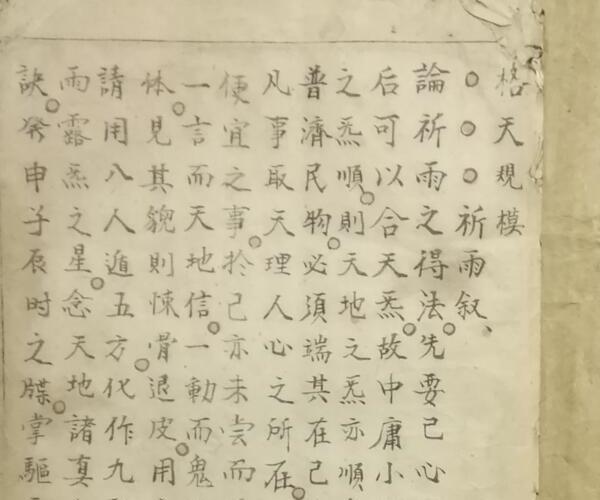 格天規模
○○○祈雨叙、
論祈雨之得法○先要己心
后可以合天炁○故中庸小
之炁順○則天地之炁亦順
普濟民物○必須端其在己
凡事取天理人心之所在○
便宜之事○扵己亦未尝而
一言而天地信○一動而鬼
体○見其貌則悚骨退皮○用
請用八人遁五方○化作九
雨露炁之星○念天地諸真
訣○発申子辰时之牒○掌驅